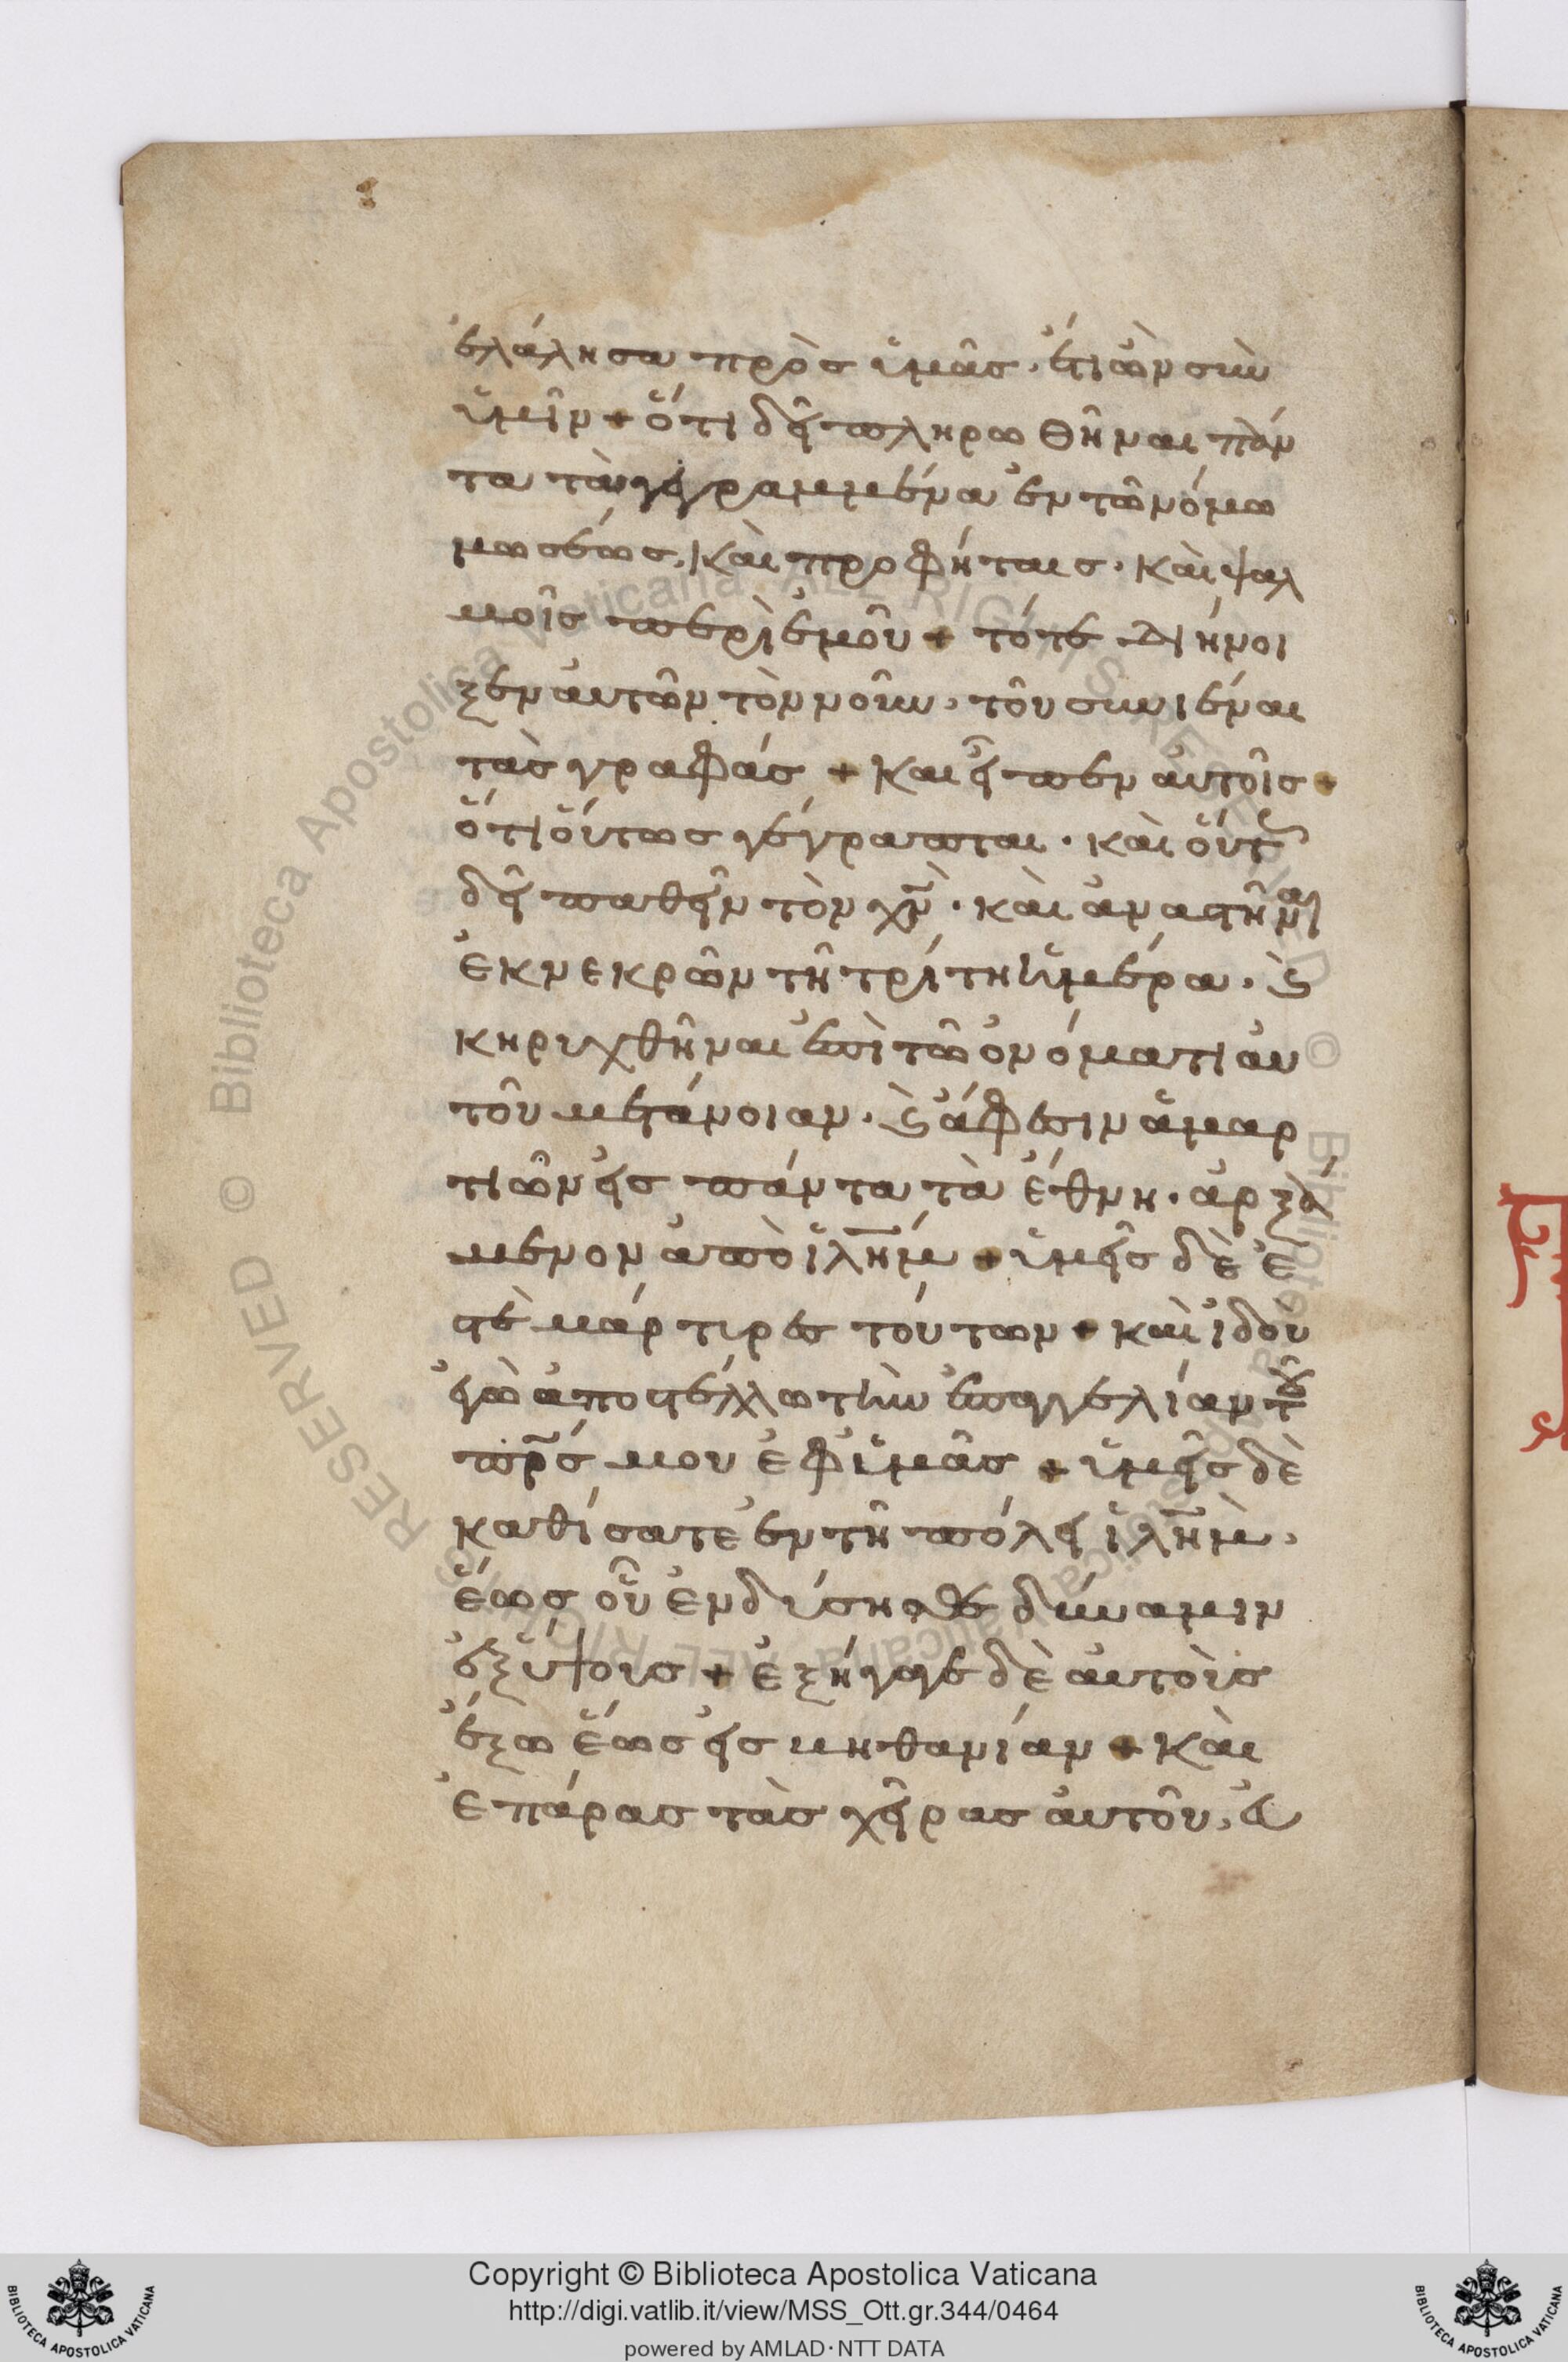 ἐλάλησα πρὸς ὑμᾶς· ἔτι ὢν σὺν
ὑμῖν + ὅτι δεῖ πληρωθῆναι πάν
τα τὰ γεγραμμένα ἐν τῶ νόμω
μωσέως, καὶ προφήταις· καὶ ψαλ
μοῖς περὶ ἐμοῦ + τότε διήνοι
ξεν αὐτῶν τὸν νοῦν, τοῦ συνιέναι
τὰς γραφάς + και εἶπεν αὐτοῖς +
ὅτι οὕτως γέγραπται· καὶ οὕτ
δεῖ παθεῖν τὸν χν· καὶ ἀναστῆναι
ἐκ νεκρῶν τῆ τρίτη ἡμέρα· ϗ
κηρυχθῆναι ἐπὶ τῶ ὀνόματι αὐ
τοῦ μετάνοιαν· ϗ ἄφεσιν ἁμαρ
τιῶν εἰς πάντα τὰ ἔθνη· ἀρξά
μενον ἀπὸ ἱλήμ + ὑμεῖς δὲ ἐ
στὲ μάρτιρες τούτων + καὶ ἰδοὺ
ἐγὼ ἀποστέλλω τὴν ἐπαγγελίαν τοῦ
πρς μου ἐφ ὑμᾶς + ὑμεῖς δὲ
καθίσατε ἐν τῆ πόλει ἱλὴμ,
ἕως οὗ ἐνδύσησθε δύναμιν
ἐξ ὕψους + ἐξήγαγε δὲ αὐτοὺς
ἔξω ἕως εἰς βηθανίαν + καὶ
ἐπάρας τὰς χεῖρας αὐτοῦ, εὐ
Copyright © Biblioteca Apostolica Vaticana
http://digi.vatlib.it/view/MSS_Ott.gr.344/0464
powered by AMLAD·NTT DATA
BIBLIOTECA APOSTOLICA VATICANA
BIBLIOTECA APOSTOLICA VATICANA